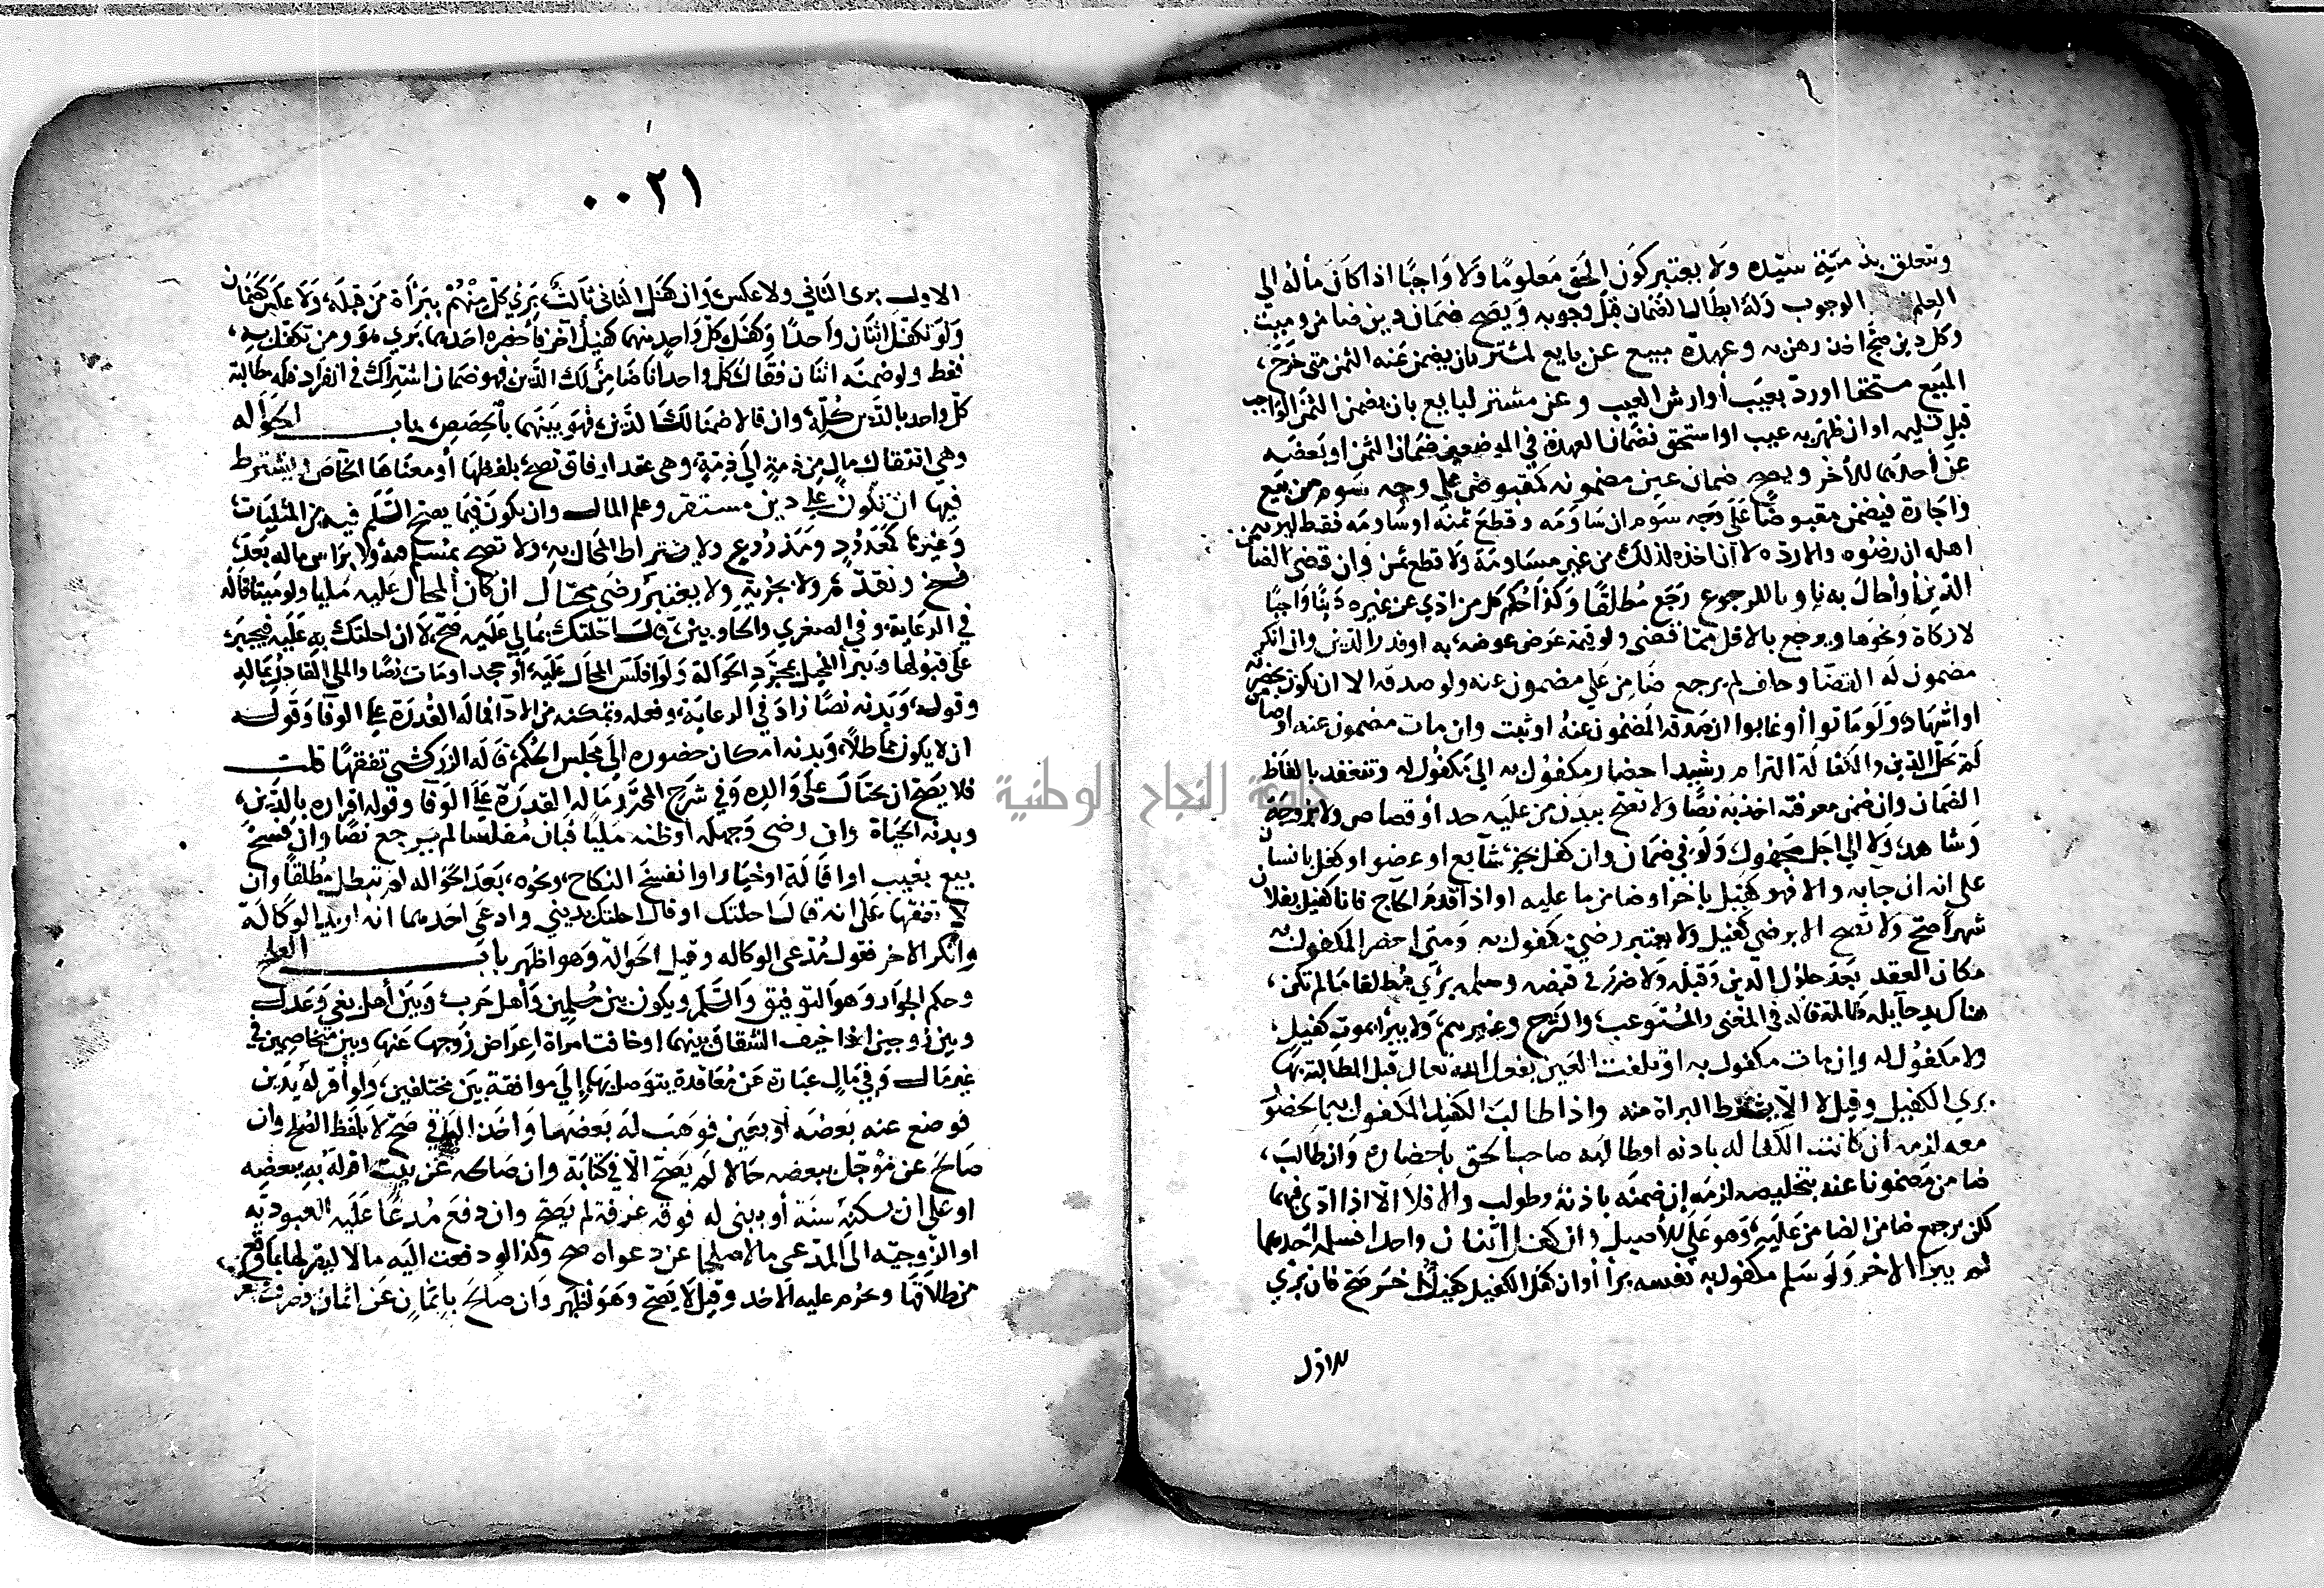 وتتعلق بذمته سيده ولا يعتبر كون الحق معلومًا ولا واجبًا اذا كان مآله الى
العلم الوجوب وله ابطال الضمان قبل وجوبه ويصح ضمان دين ضامن وميت
وكل دين صح اخذ رهن به وعهدة مبيع عن بايع لمشتر بان يضمن عنه الثمن متى خرج
المبيع مستحقا اورد بعيب أوارش العيب وعن مشتر لبايع بان يضمن الثمن الواجب
قبل تسليمه او ان ظهر به عيب او استحق فضمان العهدة في الموضعين ضمان الثمن او بعضه
عن أحدهما للأخر ويصح ضمان عين مضمونه كمقبوض على وجه سوم من بيع
واجارة فيضمن مقبوضًا على وجه سوم ان ساومه وقطع ثمنه او ساومه فقط ليريه
اهله ان رضوه والا رده لا ان اخذه لذلك من غير مساومة ولا قطع ثمن وان قضى الضامن
الدين أو أحال به ناويا للرجوع رجع مطلقًا وكذا حكم كل من ادى عن غيره دينًا واجبًا
لا زكاة ونحوها ويرجع بالاقل مما قضى ولو قيمة عرض عوضه به او قدر الدين وان انكر
مضمون له القضا وحلف لم يرجع ضامن على مضمون عنه ولو صدقه الا ان يكون بحضرته
او اشهاد ولو ماتوا أو غابوا ان صدقه المضمون عنه او ثبت وان مات مضمون عنه اوضامن
لم يحل الدين والكفالة التزام رشيد احضار مكفول به الى مكفول له وتنعقد بالفاظ
الضمان وان ضمن معرفته اخذ به نصًا ولا تصح ببدن من عليه حد أو قصاص ولا بزوجة
وشاهد ولا الى اجل مجهول ولو في ضمان وان كفل بجزء شايع او عضو او كفل بانسان
على انه ان جآ به والا فهو كفيل بآخر او ضامن ما عليه او اذا قدم الحاج فانا كفيل بفلان
شهرا صح ولا تصح الا برضى كفيل ولا يعتبر رضى مكفول به ومتى احضر المكفول به
مكان العقد بعد حلول الدين وقبله ولا ضرر في قبضه وسلمه بري مطلقا ما لم تكن
هناك يد حايلة ظالمة قاله في المغنى والمستوعب والشرح وغيرهم ولا يبرأ بموت كفيل
ولا مكفول له وإن مات مكفول به او تلفت العين بفعل الله تعالى قبل المطالبة بها
بري الكفيل وقيل لا الا بشرط البراة منه واذا طالب الكفيل المكفول به بالحضور
معه لزمه ان كانت الكفالة باذنه او طالبه صاحب الحق باحضاره وان طالب
ضامن مضمونا عنه بتخليصه لزمه إن ضمنه باذنه وطولب والا فلا الا اذا ادى فيهما
لكن يرجع ضامن الضامن عليه وهو على للأصيل وان كفل اثنان واحدا فسلمه احدهما
لم يبرأ الاخر ولو سلم مكفول به نفسه برأا وان كفل الكفيل كفيلا اخر صح فان بري
الاول
٠٠٢١
الاول بري الثاني ولا عكس وان كفل الثاني ثالث بري كل منهم ببرأة من قبله ولا عكس كضمان
ولو تكفل اثنان واحدًا وكفل كل واحد منهما كفيل آخر فأحضره احدهما بري هو ومن تكفل به
فقط ولو ضمنه اثنان فقال كل واحد انا ضامن لك الدين فهو ضمان اشتراك في انفراد فله مطالبة
كل واحد بالدين كله وان قالا ضمنا لك الدين فهو بينهما بالحصص باب الحواله
وهي انتقال مال من ذمة الى ذمة وهي عقد ارفاق تصح بلفظها أو معناها الخاص ويشترط
فيها ان تكون على دين مستقر وعلم المال وان يكون فيما يصح السلم فيه من المثليات
وغيرها كمعدود ومذروع ولا يشترط استقرار المحال به ولا تصح بمسلم فيه ولا براس ماله بعد
فسخ ونقد ثم ولا بجزية ولا يعتبر رضى محتال ان كان المحال عليه مليا ولو ميتا قاله
في الرعاية وفي الصغرى والحاويين ان قال احلتك بما لى عليه صح لا ان احلتك به عليه فيجبر
على قبولها ويبرأ المحيل بمجرد الحوالة ولو افلس المحال عليه أو جحد او مات نصا والملي القادر بماله
وقوله وبدنه نصًا زاد في الرعاية وفعله وتمكنه من الادآ فماله القدرة على الوفا وقوله
ان لا يكون مماطلا وبدنه امكان حضوره الى مجلس الحكم قاله الزركشي تفقهًا قلت
فلا يصح ان يحتال على والده وفي شرح المحرر ماله القدرة على الوفا وقوله اقراره بالدين
وبدنه الحياة وان رضى وجهله أو ظنه مليًا فبان مفلسا لم يرجع نصا وان فسخ
بيع بعيب او اقالة او خيار او انفسخ النكاح ونحوه بعد الحواله لم تبطل مطلقا وان
اتفقا على انه قال احلتك او قال احلتك بديني وادعى احدهما انه اريد بها الوكالة
وانكر الاخر فقول مدعى الوكاله وقيل الحوالة وهو اظهر باب الصلح
وحكم الجواز وهو التوفيق والسلم ويكون بين مسلمين وأهل حرب وبين أهل بغي وعدل
وبين زوجين اذا خيف الشقاق بينهما او خافت امراة اعراض زوجها عنها وبين متخاصمين في
غير مال وفي مال عبارة عن معاقدة يتوصل بها إلى موافقة بين مختلفين ولو أقر له بدين
فوضع عنه بعضه أو بعين فوهب له بعضها واخذ الباقي صح لا بلفظ الصلح وان
صالح عن مؤجل ببعضه حالا لم يصح الا في كتابة وان صالحه عن بيت اقر له به ببعضه
او على ان يسكنه سنة أو يبنى له فوقه غرفة لم يصح وان دفع مدعًا عليه العبوديه
او الزوجيه الى المدعى مالا صلحا عن دعواه صح وكذا لو دفعت اليه مالا ليقر لها بما وقع
من طلاقها وحرم عليه الاخذ وقيل لا يصح وهو اظهر وان صالح باثمان عن اثمان فصرف